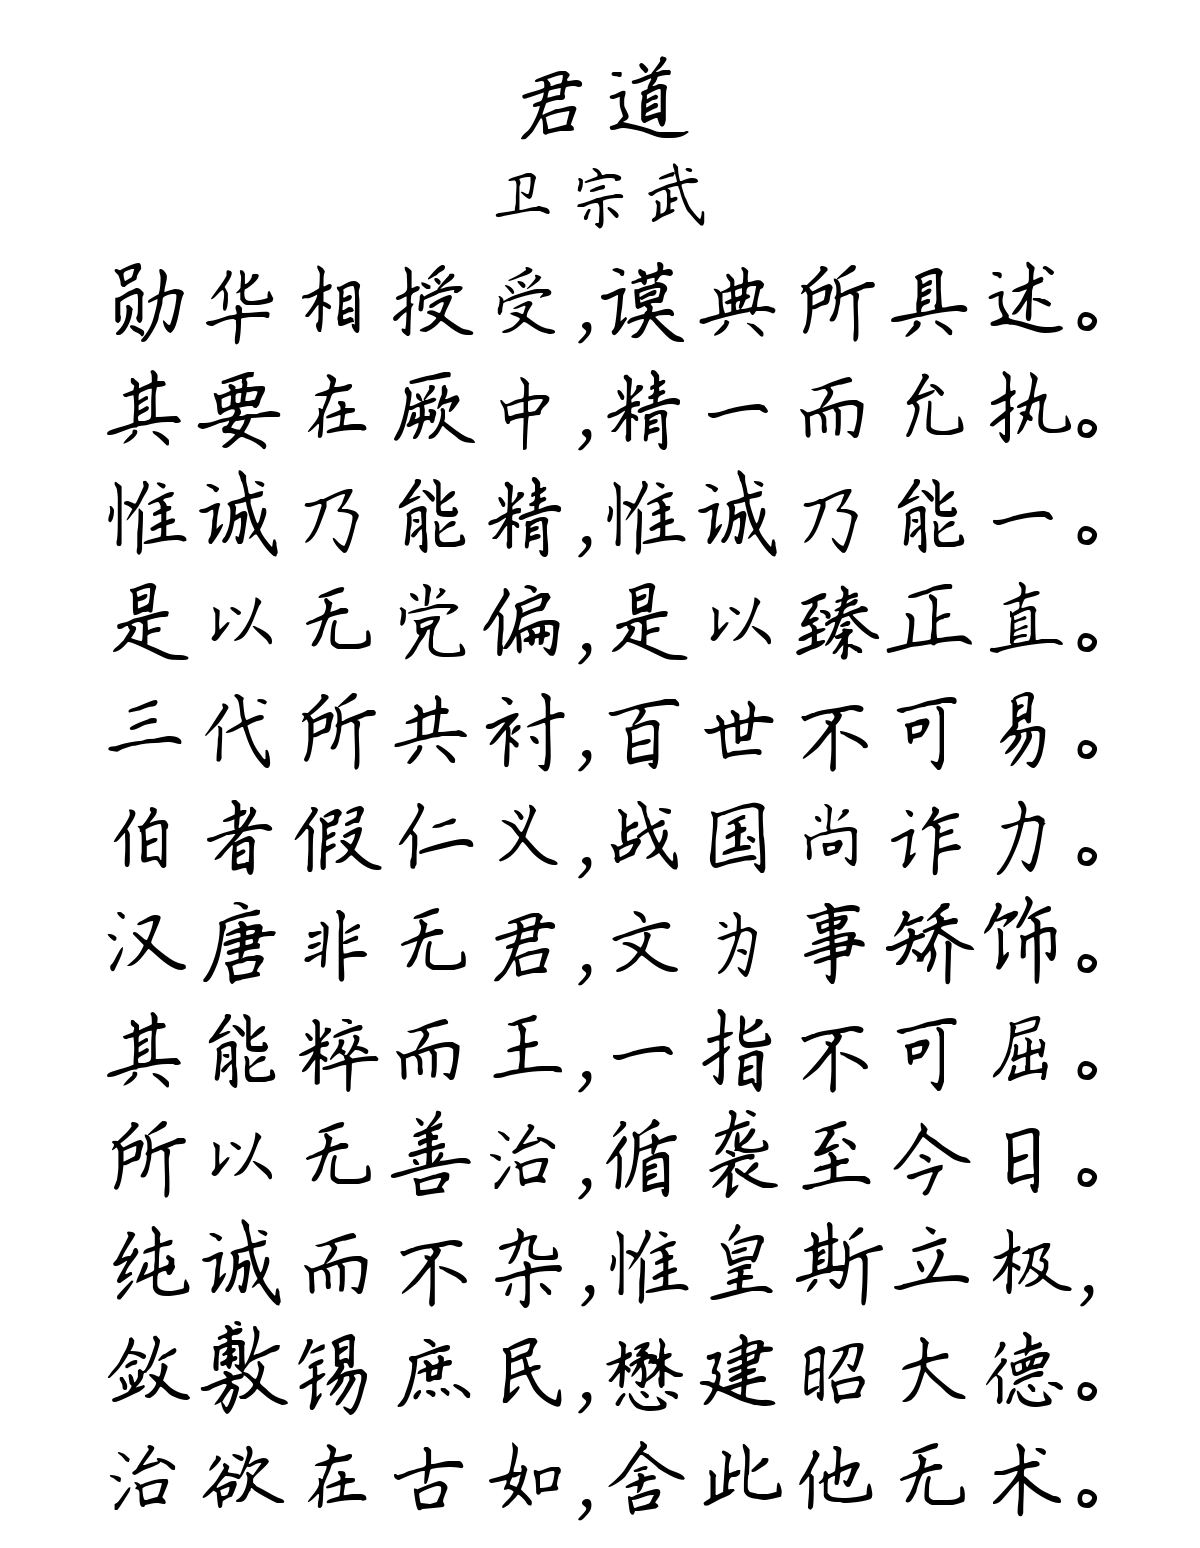 君道
卫宗武
勋华相授受,谟典所具述。
其要在厥中,精一而允执。
惟诚乃能精,惟诚乃能一。
是以无党偏,是以臻正直。
三代所共衬,百世不可易。
伯者假仁义,战国尚诈力。
汉唐非无君,文为事矫饰。
其能粹而王,一指不可屈。
所以无善治,循袭至今日。
纯诚而不杂,惟皇斯立极,
敛敷锡庶民,懋建昭大德。
治欲在古如,舍此他无术。